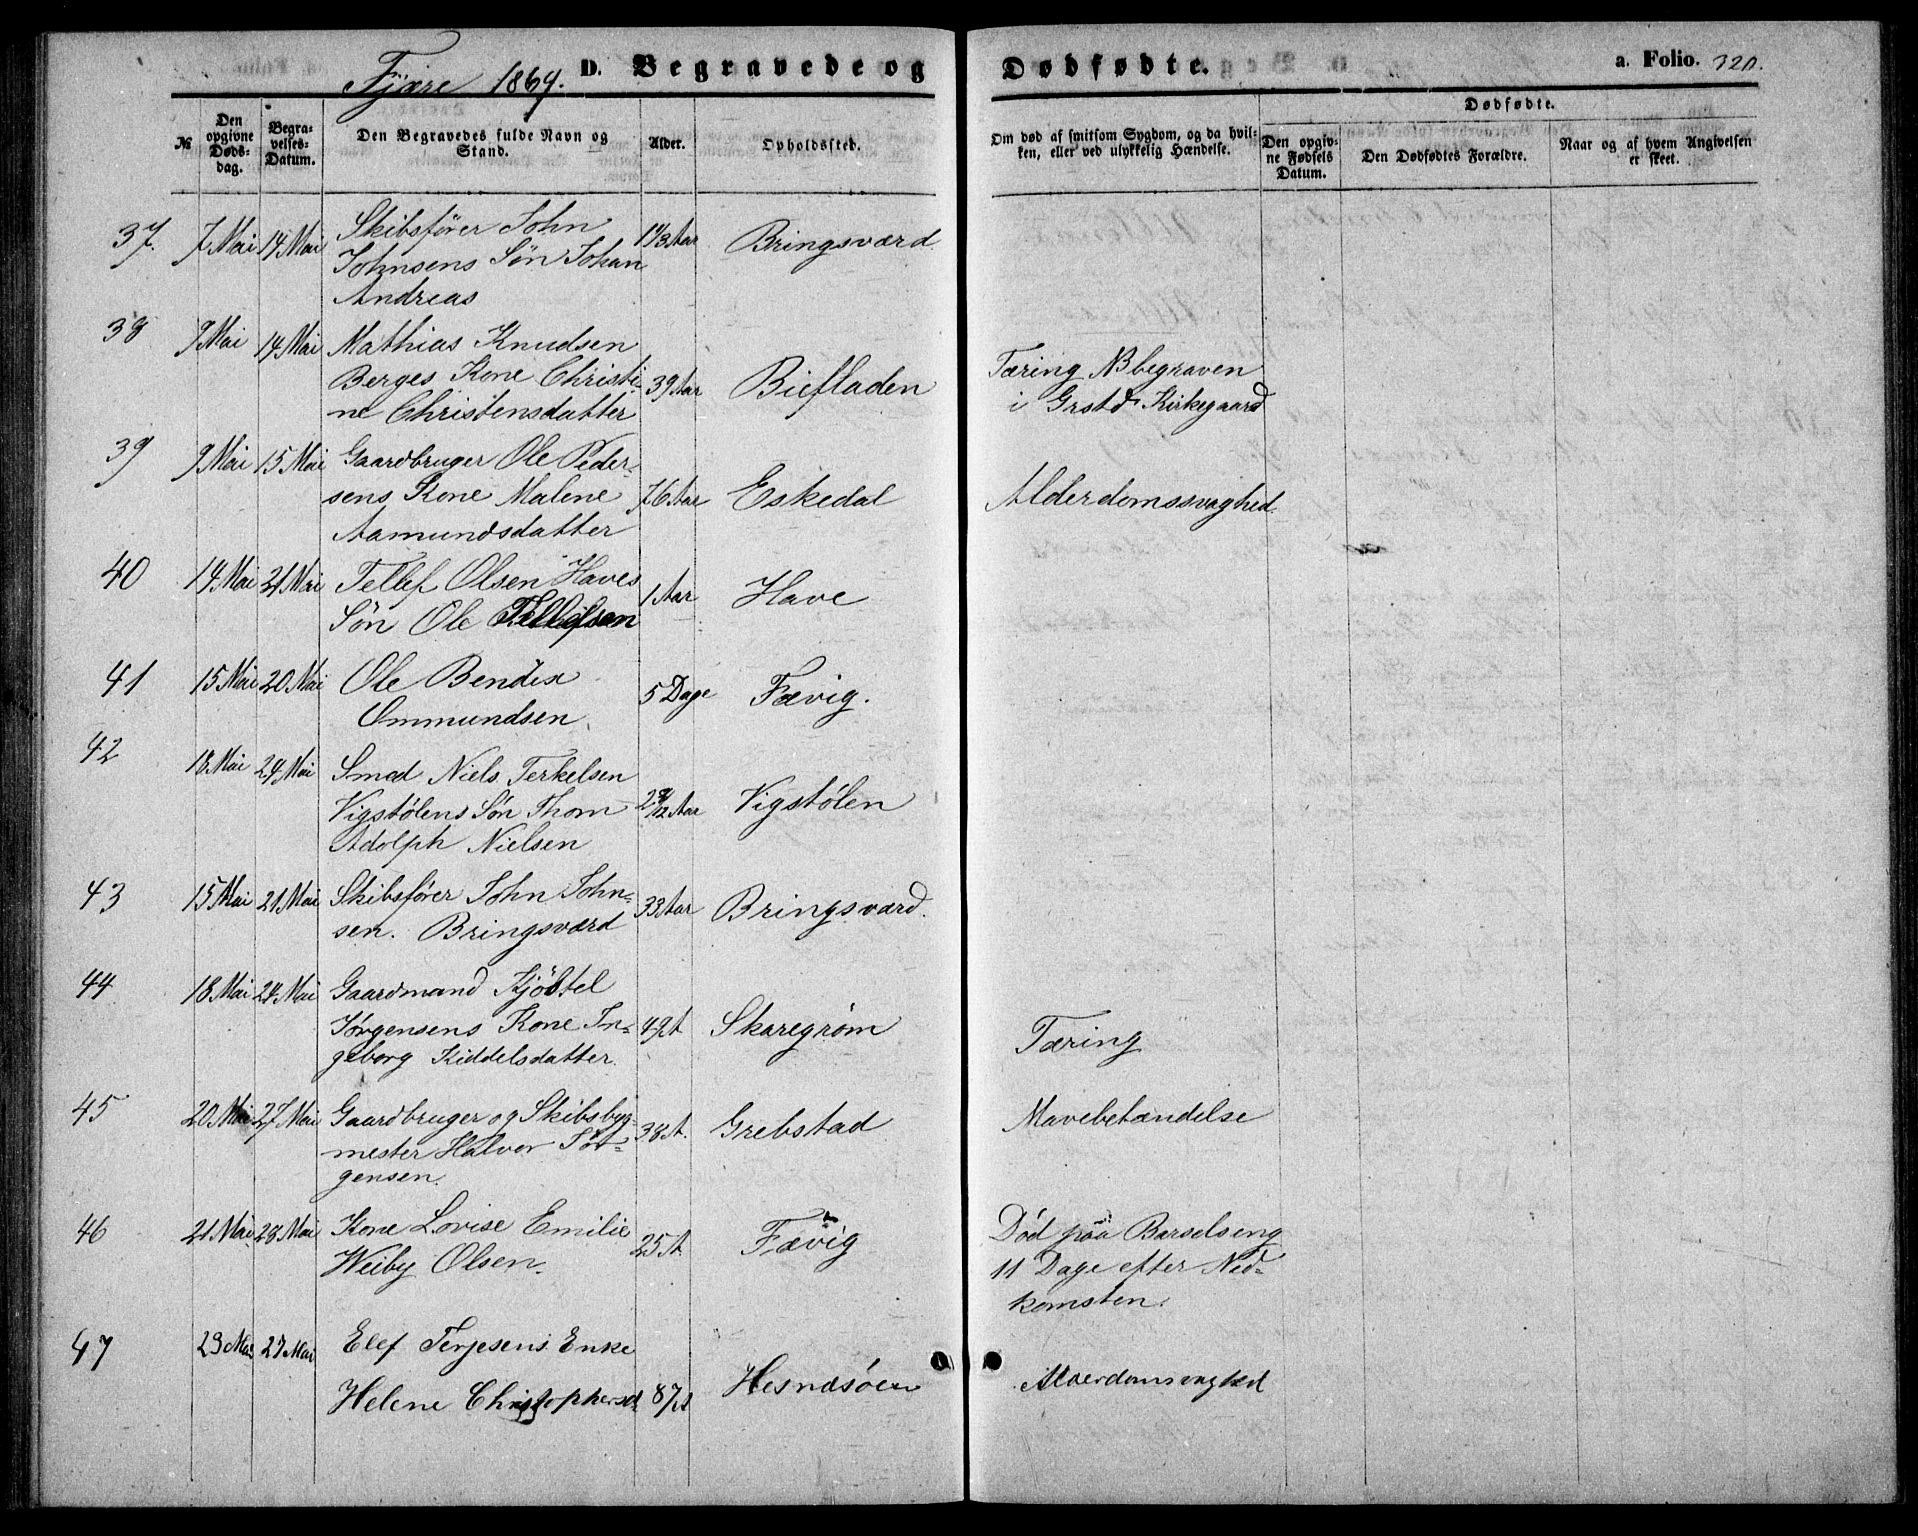 Fjære 1869. D. Begravede og Dødfødte. a. Folio. 320.
№
Den opgivne Døds-dag.
Begra-velses-Datum.
Den Begravedes fulde Navn og Stand.
Alder.
Opholdssted.
Om død af smitsom Sygdom, og da hvil-ken, eller ved ulykkelig Hændelse.
Dødfødte.
Den opgiv-ne Fødsels Datum.
Den Dødfødtes Forældre.
Naar og af hvem Angivelsen er skeet.
37. 7 Mai 14 Mai Skibsfører John 1 1/3 Aar Bringsværd
Johnsens Søn Johan
Andreas
38 9 Mai 14 Mai Mathias Knudsen
Berges Kone Christi- 39 Aar Biefladen Tæring NB begraven
ne Christensdatter i Grstd Kirkegaard
39 9 Mai 15 Mai Gaardbruger Ole Peder-
sens Kone Malene 76 Aar Eskedal Alderdomssvaghed.
Aamundsdatter
40 14 Mai 21 Mai Tellef Olsen Haves 1 Aar Have
Søn Ole Tellefsen
41 15 Mai 20 Mai Ole Bendix 5 Dage Fævig.
Ommundsen
42 18 Mai 24 Mai Smed Niels Terkelsen
Vigstølens Søn Thom Aar Vigstølen
Adolph Nielsen
43 15 Mai 21 Mai Skibsfører John John- 33 Aar Bringsværd.
sen. Bringsværd
44 18 Mai 24 Mai Gaardmand Kjøstel
Jørgensens Kone In- 49 A Skaregrøm Tæring
geborg Kiddelsdatter.
45 20 Mai 27 Mai Gaardbruger og Skibsbyg- 38 A. Grebstad Mavebetændelse
mester Halvor Jør-
gensen.
46 21 Mai 28 Mai Kone Lovise Emilie 25 A. Fævig Død paa Barselseng
Weiby Olsen. 11 Dage efter Ned-
komsten.
47 23 Mai 27 Mai Elef Terjesens Enke
Helene Christophersd. 87 A Hesnæsøen Alderdomsvaghed